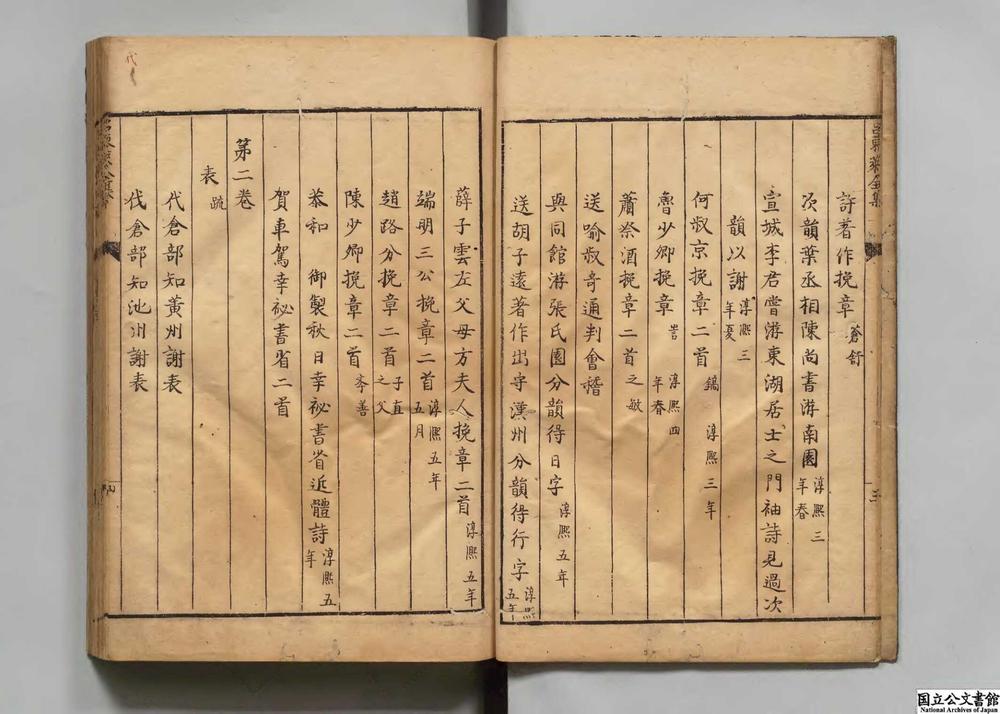 許著作挽章 蒼舒
次韻葉丞相陳尚書游南園 淳熙三年春
宣城李君嘗游東湖居士之門袖詩見過次
韻以謝 淳熙三年夏
何叔京挽章二首 鎬 淳熙三年
魯少卿挽章 訔 淳熙四年春
蕭祭酒挽章二首 之敏
送喻叔奇通判會稽
與同館游張氏園分韻得日字 淳熙五年
送胡子遠著作出守漢州分韻得行字 淳熙五年
薛子雲左父母方夫人挽章二首 淳熙五年
端明三公挽章二首 淳熙五年五月
趙路分挽章二首 子直之父
陳少卿挽章二首 季善
恭和 御製秋日幸祕書省近體詩 淳熙五年
賀車駕幸祕書省二首
第二卷
表 疏
代倉部知黃州謝表
代倉部知池州謝表
国立公文書館
National Archives of Japan